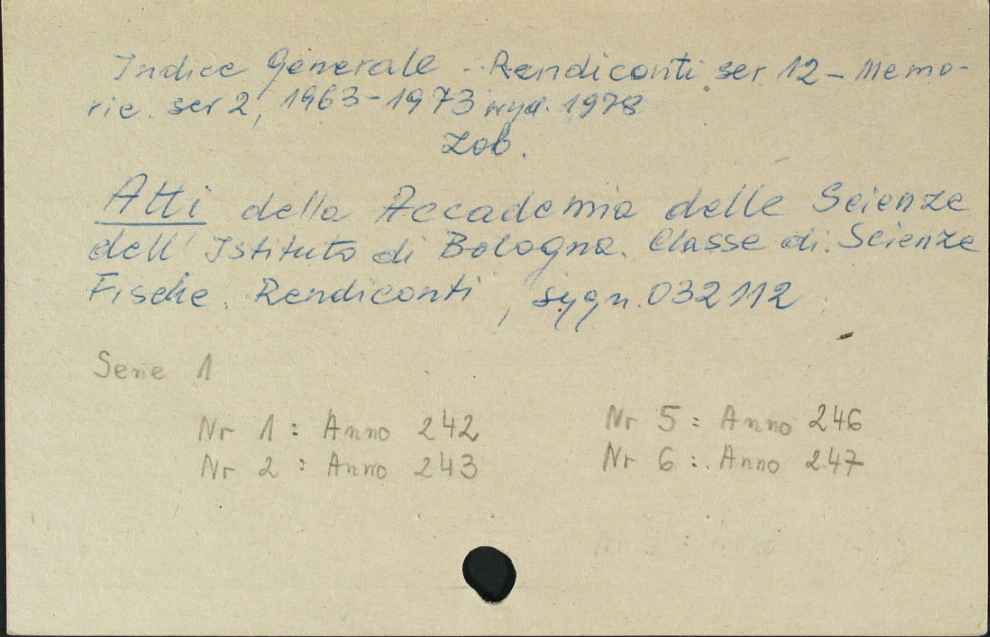 Indice Generale - Rendiconti ser 12 - Memo-
rie. ser 2, 1963-1973 wyd. 1978
Zob.
Atti della Accademia delle Scienze
dell' Istituto di Bologna. Classe di Scienze
Fisiche. Rendiconti, sygn. 032112
Serie 1
Nr 1 : Anno 242 Nr 5 : Anno 246
Nr 2 : Anno 243 Nr 6 : Anno 247